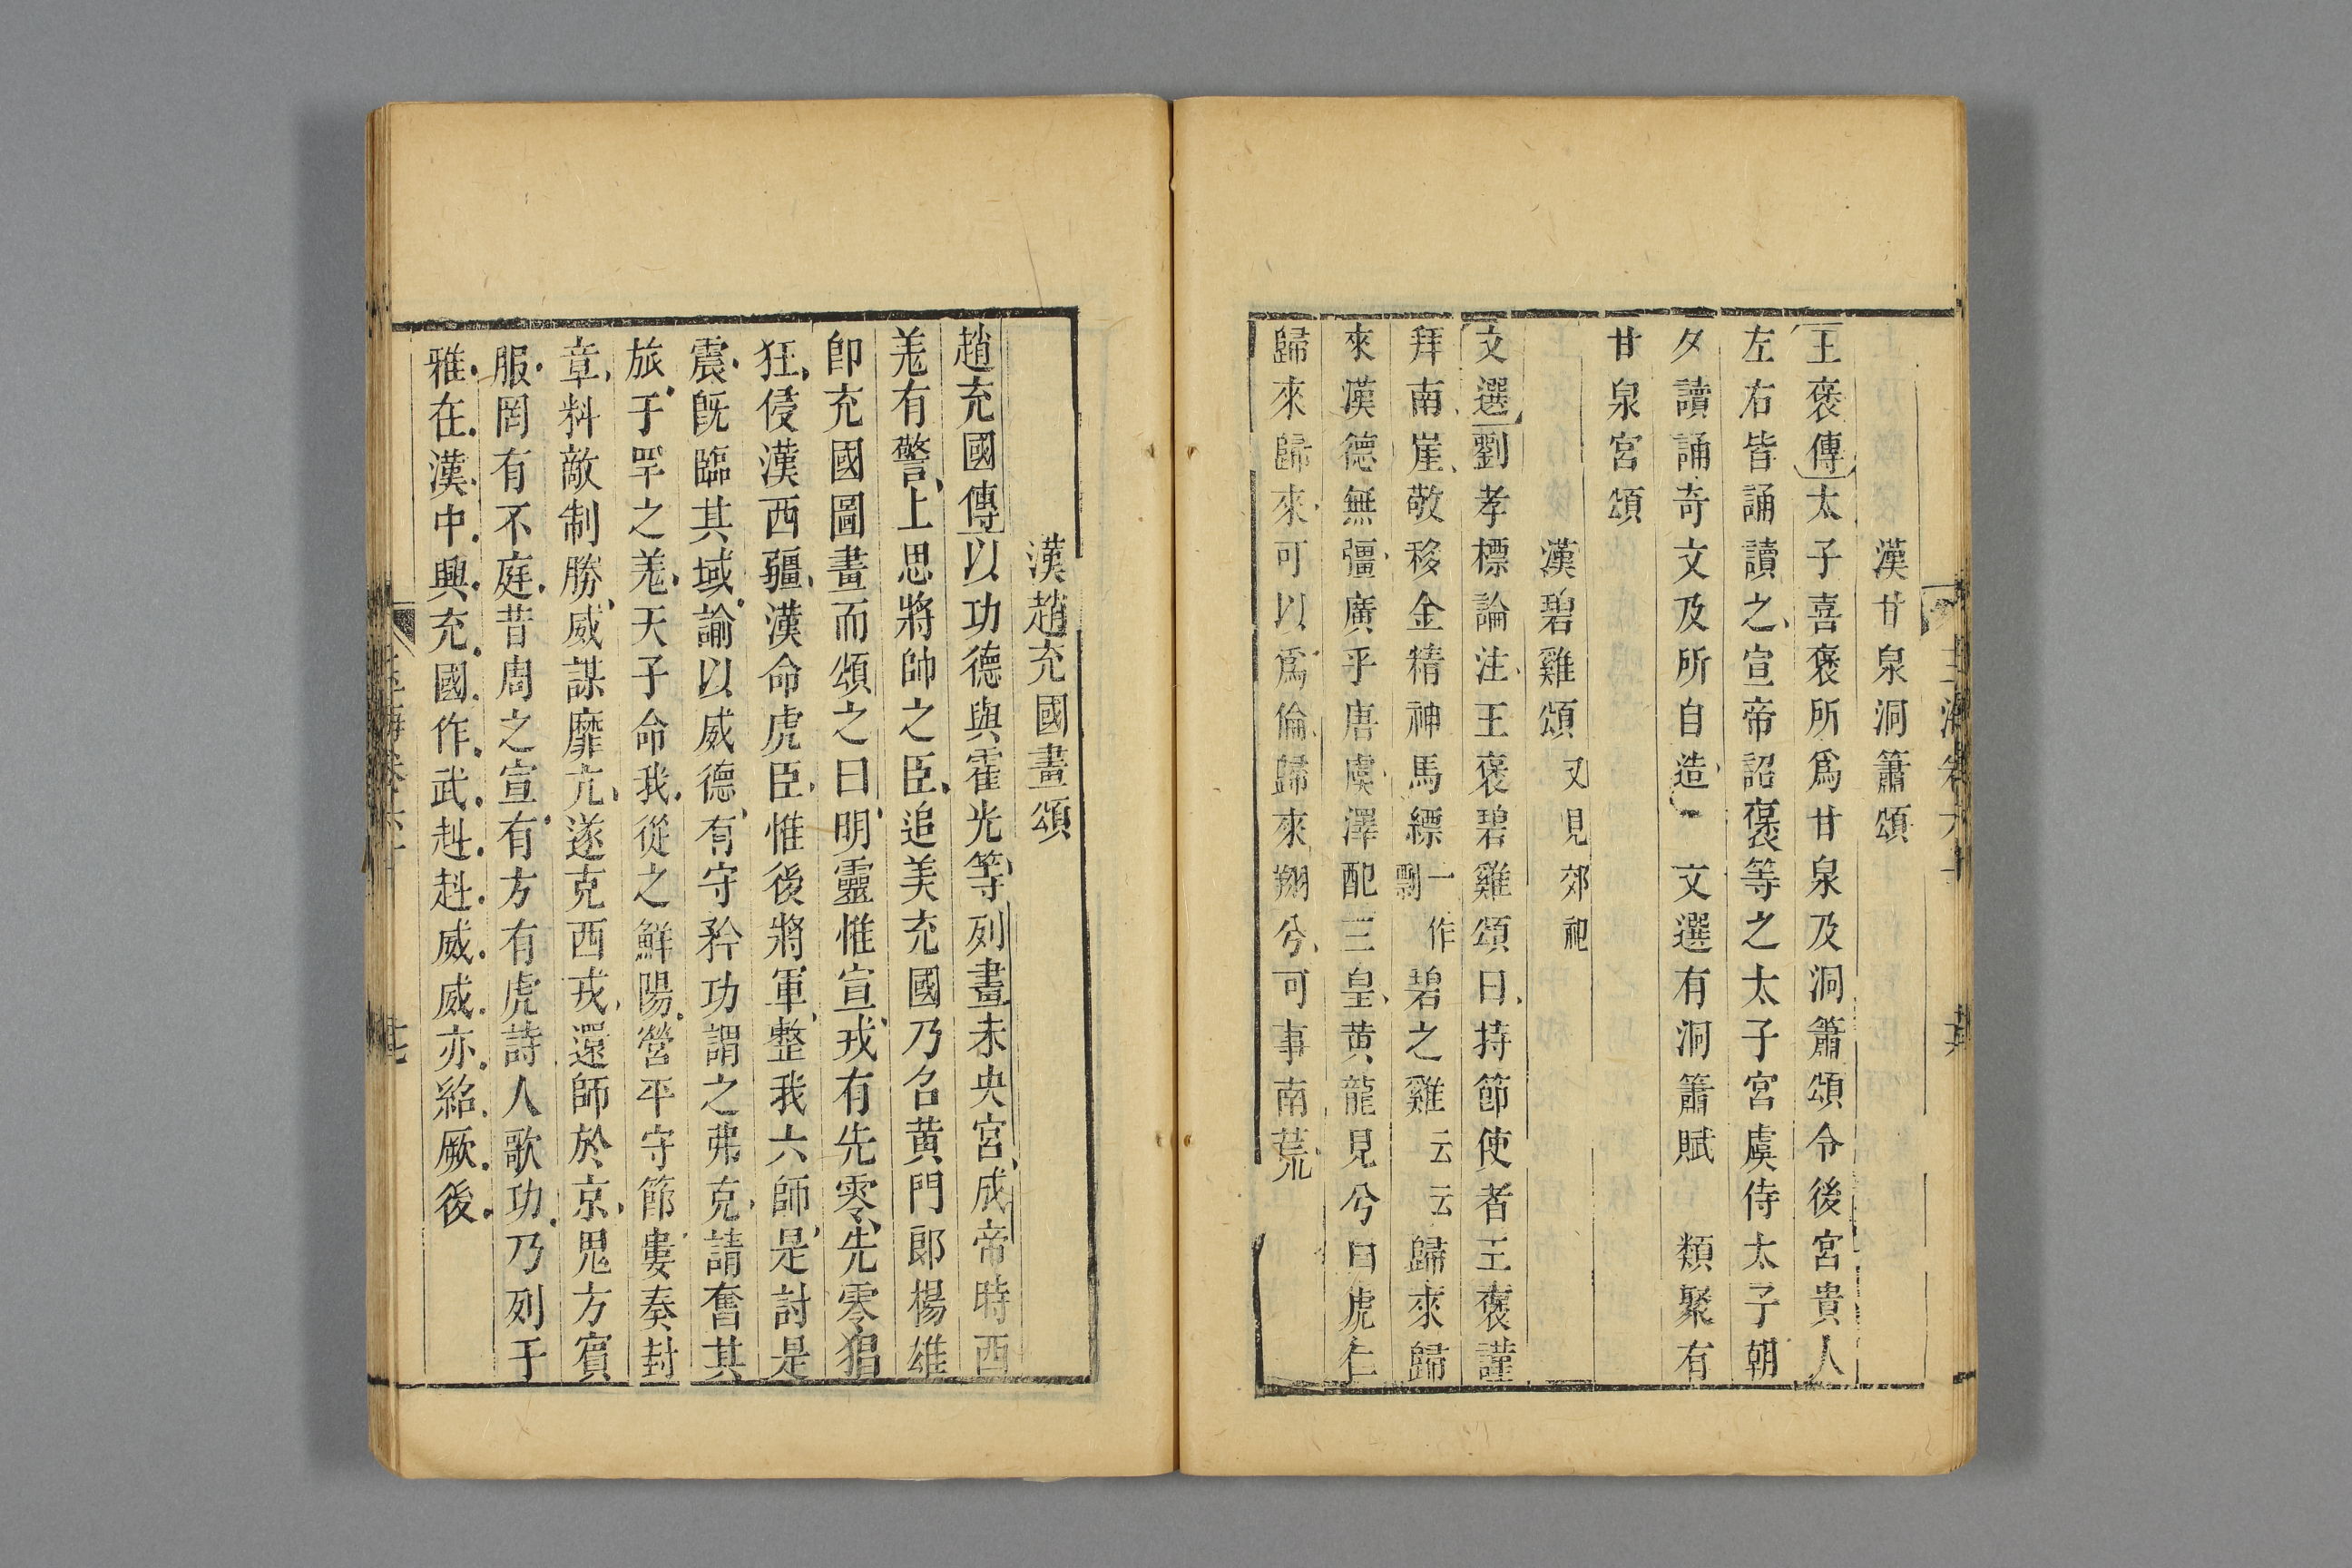 漢甘泉洞簫頌
王褒傳太子喜褒所爲甘泉及洞簫頌令後宮貴人
左右皆誦讀之宣帝詔褒等之太子宮虞侍太子朝
夕讀誦奇文及所自造 文選有洞簫賦 類聚有
甘泉宮頌
漢碧雞頌 又見郊祀
文選劉孝標論注王褒碧雞頌曰持節使者王褒謹
拜南崖敬移金精神馬縹一作飄碧之雞云云歸來歸
來漢德無彊廣乎唐虞澤配三皇黃龍見兮白虎仁
歸來歸來可以爲倫歸來翔兮可事南荒
漢趙充國畫頌
趙充國傳以功德與霍光等列畫未央宮成帝時西
羌有警上思將帥之臣追美充國乃召黃門郎楊雄
卽充國圖畫而頌之曰明靈惟宣戎有先零先零猖
狂侵漢西疆漢命虎臣惟後將軍整我六師是討是
震旣臨其域諭以威德有守矜功謂之弗克請奮其
旅于罕之羌天子命我從之鮮陽營平守節婁奏封
章料敵制勝威謀靡亢遂克西戎還師於京鬼方賓
服罔有不庭昔周之宣有方有虎詩人歌功乃列于
雅在漢中興充國作武赳赳威威亦紹厥後